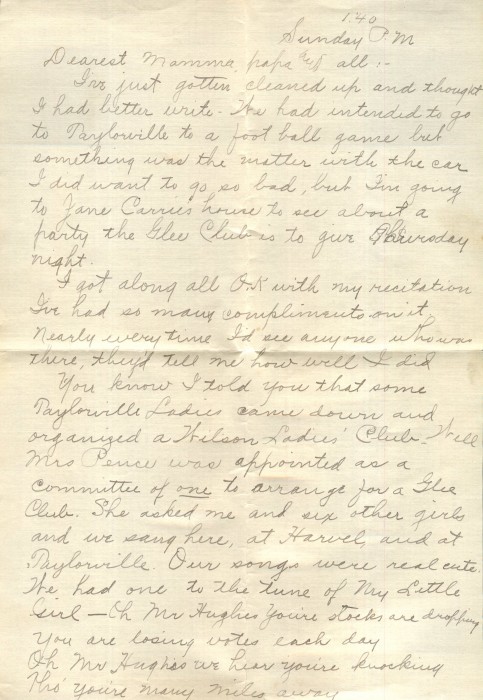 1.40
Sunday P.M
Dearest Mamma, papa & all :-
I've just gotten cleaned up and thought
I had better write - We had intended to go
to Taylorville to a foot ball game but
something was the matter with the car
I did want to go, so bad, but I'm going
to Jane Carrie's house to see about a
party the Glee Club is to give Thursday
night.
I got along all O.K with my recitation
I've had so many compliments on it,
nearly everytime I'd see anyone who was
there, they'd tell me how well I did
You know I told you that some
Taylorville Ladies came down and
organized a Wilson Ladies' Club - Well
Mrs Pence was appointed as a
committee of one to arrange for a Glee
Club. She asked me and six other girls
and we sang here, at Harvel, and at
Taylorville. Our songs were real cute.
We had one to the tune of My Little
Girl - Oh Mr Hughes You're stocks are dropping
You are losing votes each day
Oh Mr Hughes we hear you're knocking
Tho' you're many miles away